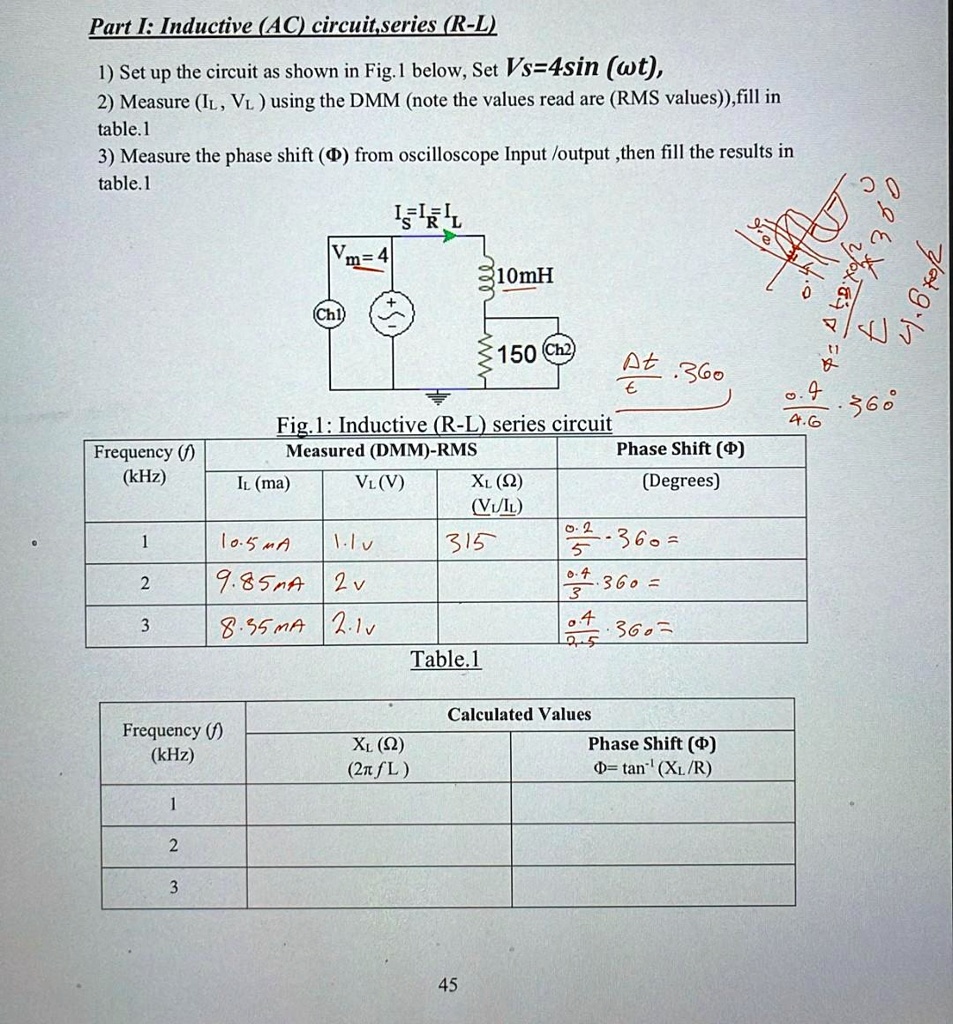 Part I: Inductive (AC) circuit,series (R-L)
1) Set up the circuit as shown in Fig.1 below, Set Vs=4sin (ωt),
2) Measure (IL, VL ) using the DMM (note the values read are (RMS values)),fill in
table.1
3) Measure the phase shift (Φ) from oscilloscope Input /output ,then fill the results in
table.1
IS=IR=IL
Vm=4
10mH
Ch1
+
-
150 Ch2
Δt/t .360
0.4/4.6 .360°
Fig.1: Inductive (R-L) series circuit
Frequency (f) Measured (DMM)-RMS Phase Shift (Φ)
(kHz) IL (ma) VL(V) XL (Ω) (Degrees)
(VL/IL)
1 10.5 mA 1.1v 315 0.2/5 .360 =
2 9.85mA 2v 0.4/3 .360 =
3 8.35mA 2.1v 0.4/2.5 .360=
Table.1
Frequency (f) Calculated Values
(kHz) XL (Ω) Phase Shift (Φ)
(2π fL ) Φ= tan-1 (XL /R)
1
2
3
45